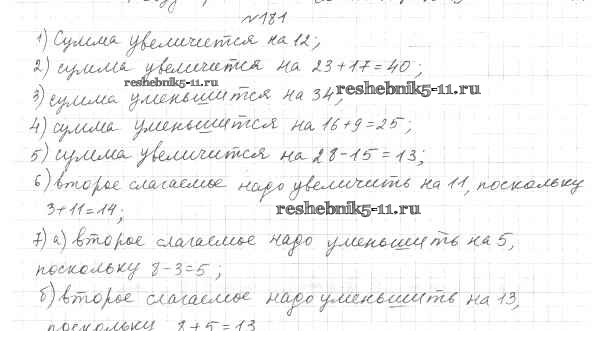 №181
1) Сумма увеличится на 12;
2) сумма увеличится на 23+17=40;
reshebnik5-11.ru
3) сумма уменьшится на 34;
reshebnik5-11.ru
4) сумма уменьшится на 16+9=25;
5) сумма увеличится на 28-15=13;
6) второе слагаемое надо увеличить на 11, поскольку
3+11=14;
reshebnik5-11.ru
7) а) второе слагаемое надо уменьшить на 5,
поскольку 8-3=5;
б) второе слагаемое надо уменьшить на 13,
поскольку 8+5=13